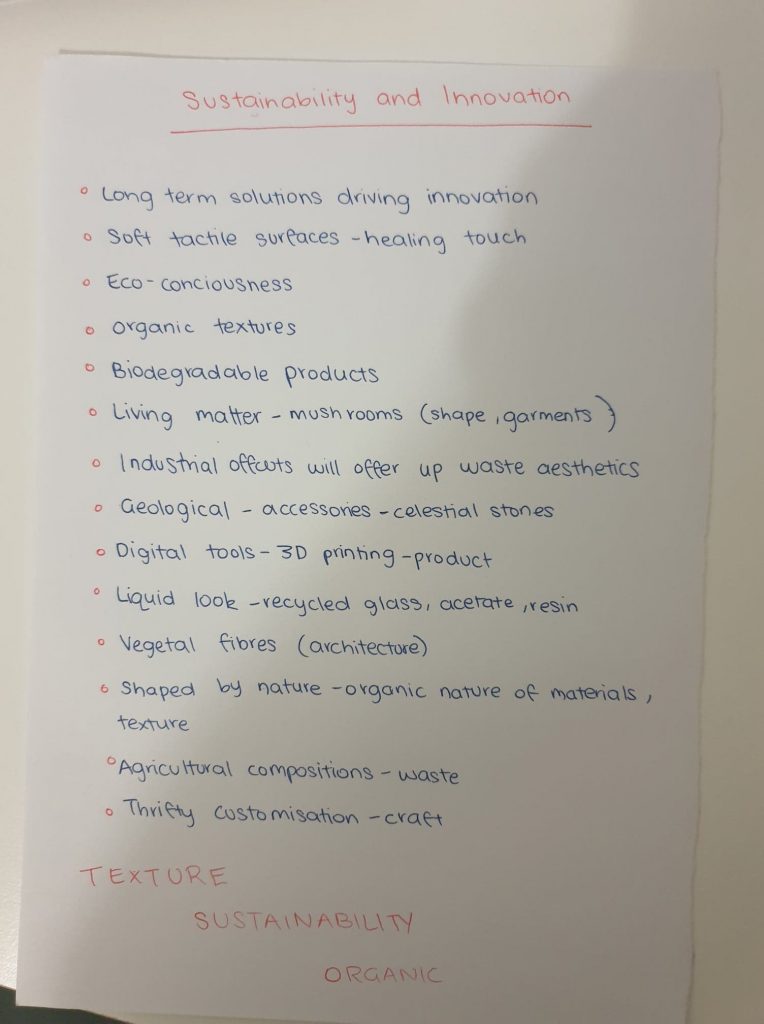 Sustainability and Innovation
Long term solutions driving innovation
Soft tactile surfaces - healing touch
Eco-conciousness
organic textures
Biodegradable products
Living matter - mushrooms (shape, garments)
Industrial offcuts will offer up waste aesthetics
Geological - accessories - celestial stones
Digital tools - 3D printing - product
Liquid look - recycled glass, acetate, resin
Vegetal fibres (architecture)
Shaped by nature - organic nature of materials,
texture
Agricultural compositions - waste
Thrifty customisation - craft
TEXTURE
SUSTAINABILITY
ORGANIC